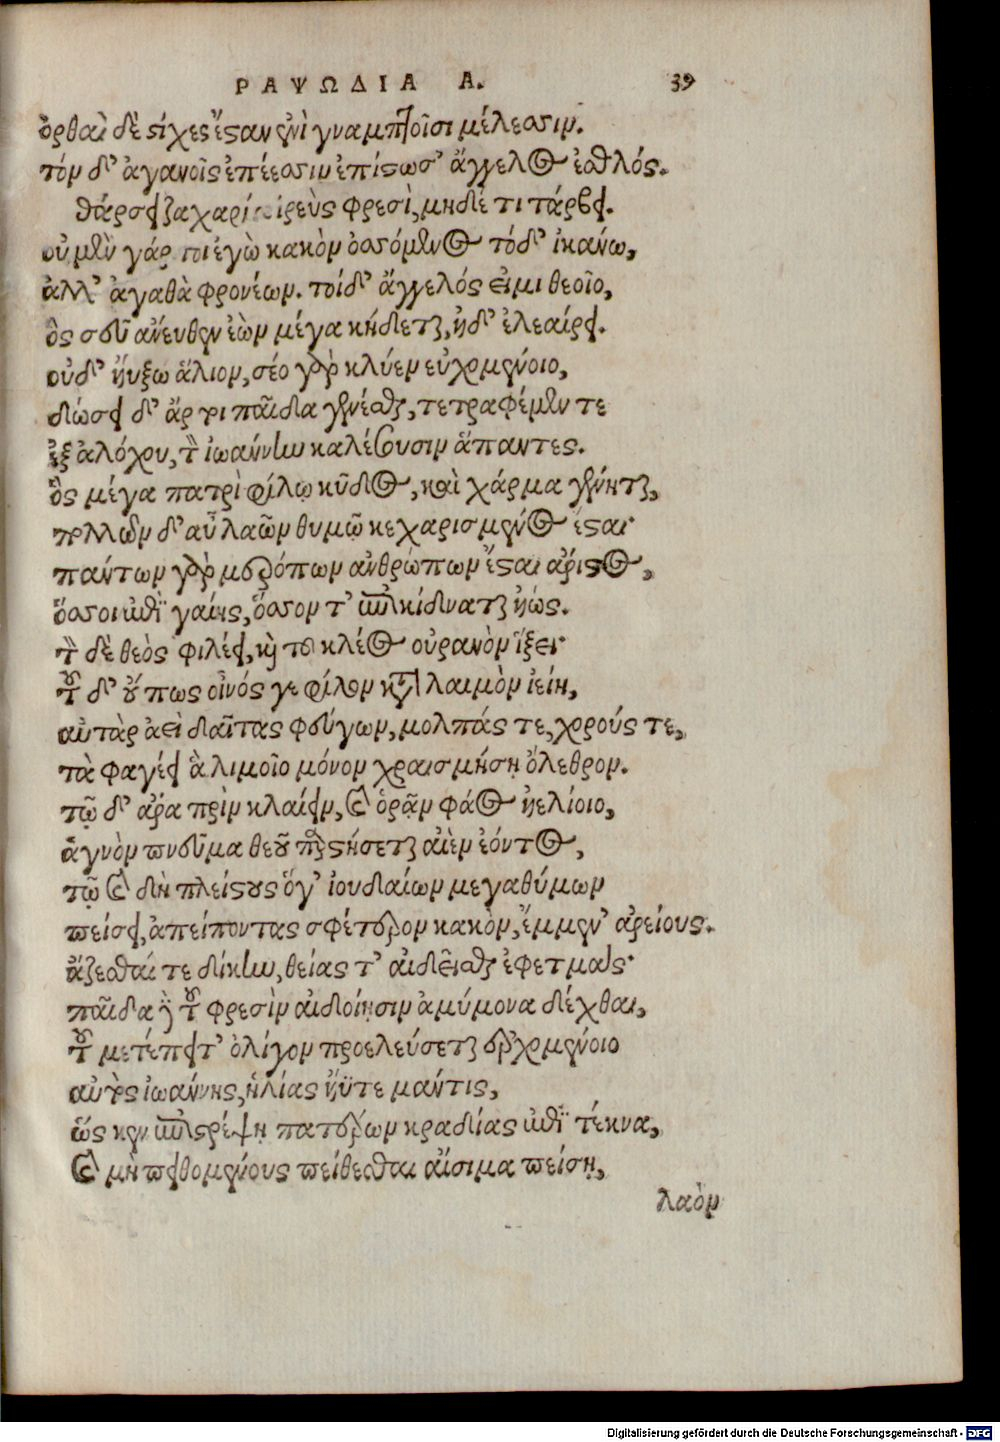 ΡΑΨΩΔΙΑ Α. 39
ὀρθαὶ δὲ στίχες ἔσαν ἐνὶ γναμπτοῖσι μέλεσσιν.
τόν δ' ἀγανοῖς ἐπέεσσιν ἐπίστωσ' ἄγγελος ἐσθλός.
θάρσει ζαχαρία ἱρεὺς φρεσὶ, μηδέ τι τάρβει.
οὐ μὲν γάρ τοι ἐγὼ κακὸν ὀσσόμενος τόδ' ἱκάνω,
ἀλλ' ἀγαθὰ φρονέων. τοὶ δ' ἄγγελός εἰμι θεοῖο,
ὃς σεῦ ἄνευθεν ἐὼν μέγα κήδεται, ἠδ' ἐλεαίρει.
οὐδ' ηὔξω ἅλιον, σέο γὰρ κλύεν εὐχομένοιο,
δώσει δ' ἄρ τι παῖδα γενέσθαι, τετραφέμεν τε
ἐξ ἀλόχου, τὸν ἰωάννην καλέουσιν ἅπαντες.
ὃς μέγα πατρὶ φίλῳ κῦδος, καὶ χάρμα γένηται,
πολλῶν δ' αὖ λαῶν θυμῷ κεχαρισμένος ἔσται·
πάντων γὰρ μερόπων ἀνθρώπων ἔσται ἄριστος,
ὅσσοι ἐπὶ γαίης, ὅσσον τ' ἐπικίδναται ἠώς.
τὸν δὲ θεὸς φιλέει, καὶ τοῦ κλέος οὐρανὸν ἵξει·
τοῦ δ' οὔπως οἶνός γε φίλον κατὰ λαιμὸν ἰείη,
αὐτὰρ ἀεὶ δαῖτας φεύγων, μολπάς τε, χορούς τε,
τὰ φαγέει ἃ λιμοῖο μόνον χραισμήσῃ ὄλεθρον.
τῷ δ' ἄρα πρὶν κλαίειν, καὶ ὁρᾶν φάος ἠελίοιο,
ἁγνὸν πνεῦμα θεοῦ παρστήσεται αἰὲν ἐόντος,
τῷ καὶ δὴ πλείστους ὅγ' ἰουδαίων μεγαθύμων
πείσει, ἀπείποντας σφέτερον κακὸν, ἔμμεν' ἀρείους.
ἅζεσθαί τε δίκην, θείας τ' αἰδεῖσθαι ἐφετμάς·
παῖδα δὲ τοῦ φρεσὶν αἰδοίῃσιν ἀμύμονα δέχθαι,
τοῦ μετέπειτ' ὀλίγον προελεύσεται ἐρχομένοιο
αὐτὸς ἰωάννης, ἡλίας ἠΰτε μάντις,
ὥς κεν ἐπιστρέψῃ πατέρων κραδίας ἐπὶ τέκνα,
καὶ μὴ πειθομένους πείθεσθαι αἴσιμα πείσῃ,
λαὸν
Digitalisierung gefördert durch die Deutsche Forschungsgemeinschaft - DFG